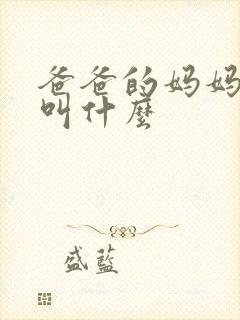 爸爸的妈妈
叫什麼
盛蓝